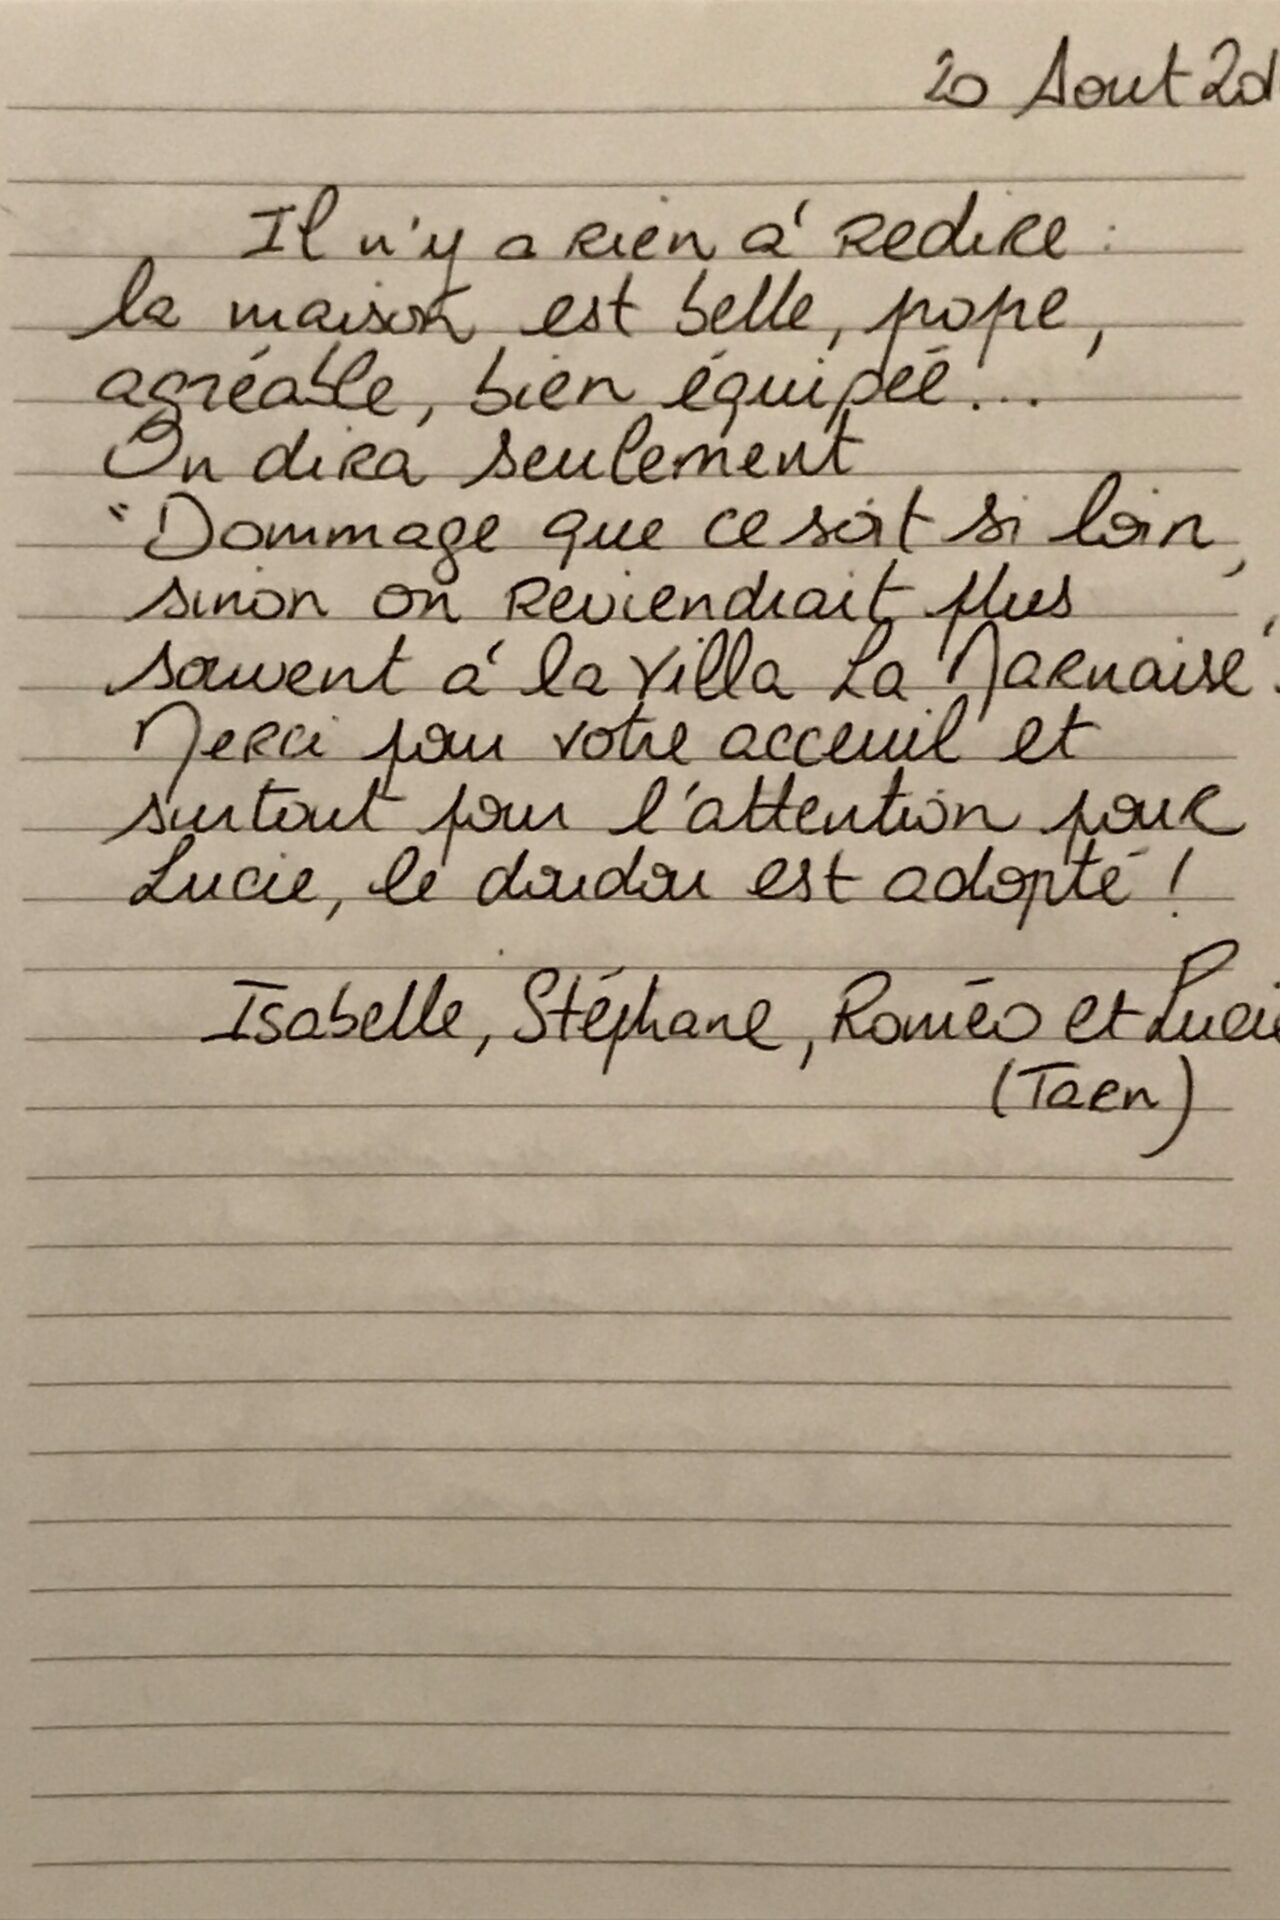 20 Aout 201
Il n'y a rien à redire :
la maison est belle, pope,
agréable, bien équipée...
On dira seulement
"Dommage que ce soit si loin,
sinon on reviendrait plus
souvent à la villa La Marnaise".
Merci pour votre acceuil et
surtout pour l'attention pour
Lucie, le doudou est adopté !
Isabelle, Stéphane, Roméo et Lucie
(Tarn)